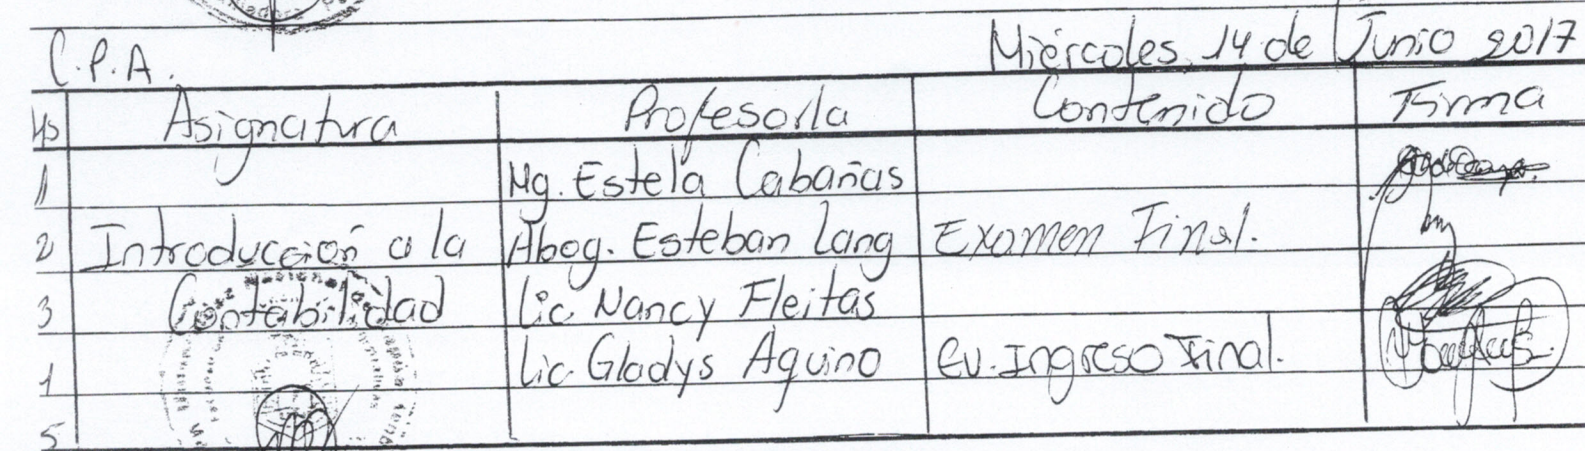 C.P.A.
Miércoles, 14 de Junio 2017
Hs Asignatura Profesor/a Contenido Firma
1 Mg. Estela Cabañas
2 Introducción a la Abog. Esteban Lang Examen Final.
3 Contabilidad Lic. Nancy Fleitas
4 Lic. Gladys Aquino Ev. Ingreso Final.
5